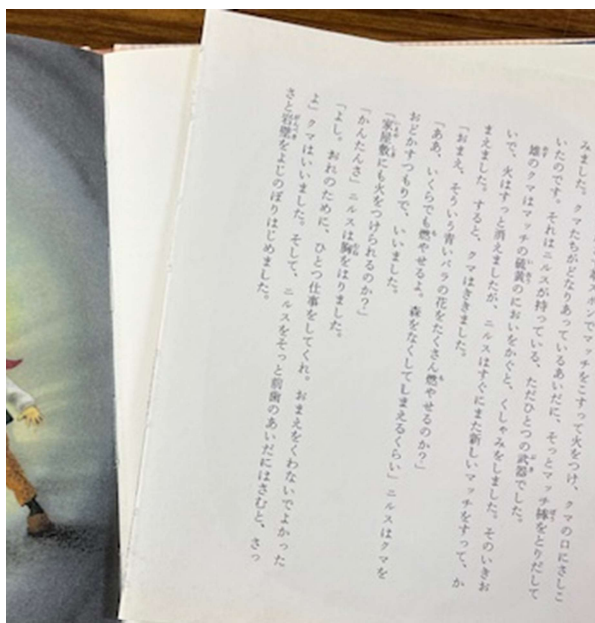 ズボンでマッチをこすって火をつけ、クマの口にさしこ
みました。クマたちがどなりあっているあいだに、そっとマッチ棒をとりだして
いたのです。それはニルスが持っている、ただひとつの武器でした。
雄のクマはマッチの硫黄のにおいをかぐと、くしゃみをしました。そのいきお
いで、火はすっと消えましたが、ニルスはすぐにまた新しいマッチをすって、か
まえました。すると、クマはききました。
「おまえ、そういう青いバラの花をたくさん燃やせるのか?」
「ああ、いくらでも燃やせるよ。森をなくしてしまえるくらい」ニルスはクマを
おどかすつもりで、いいました。
「家屋敷にも火をつけられるのか?」
「かんたんさ」ニルスは胸をはりました。
「よし。おれのために、ひとつ仕事をしてくれ。おまえをくわないでよかった
よ」クマはいいました。そして、ニルスをそっと前歯のあいだにはさむと、さっ
さと岩壁をよじのぼりはじめました。